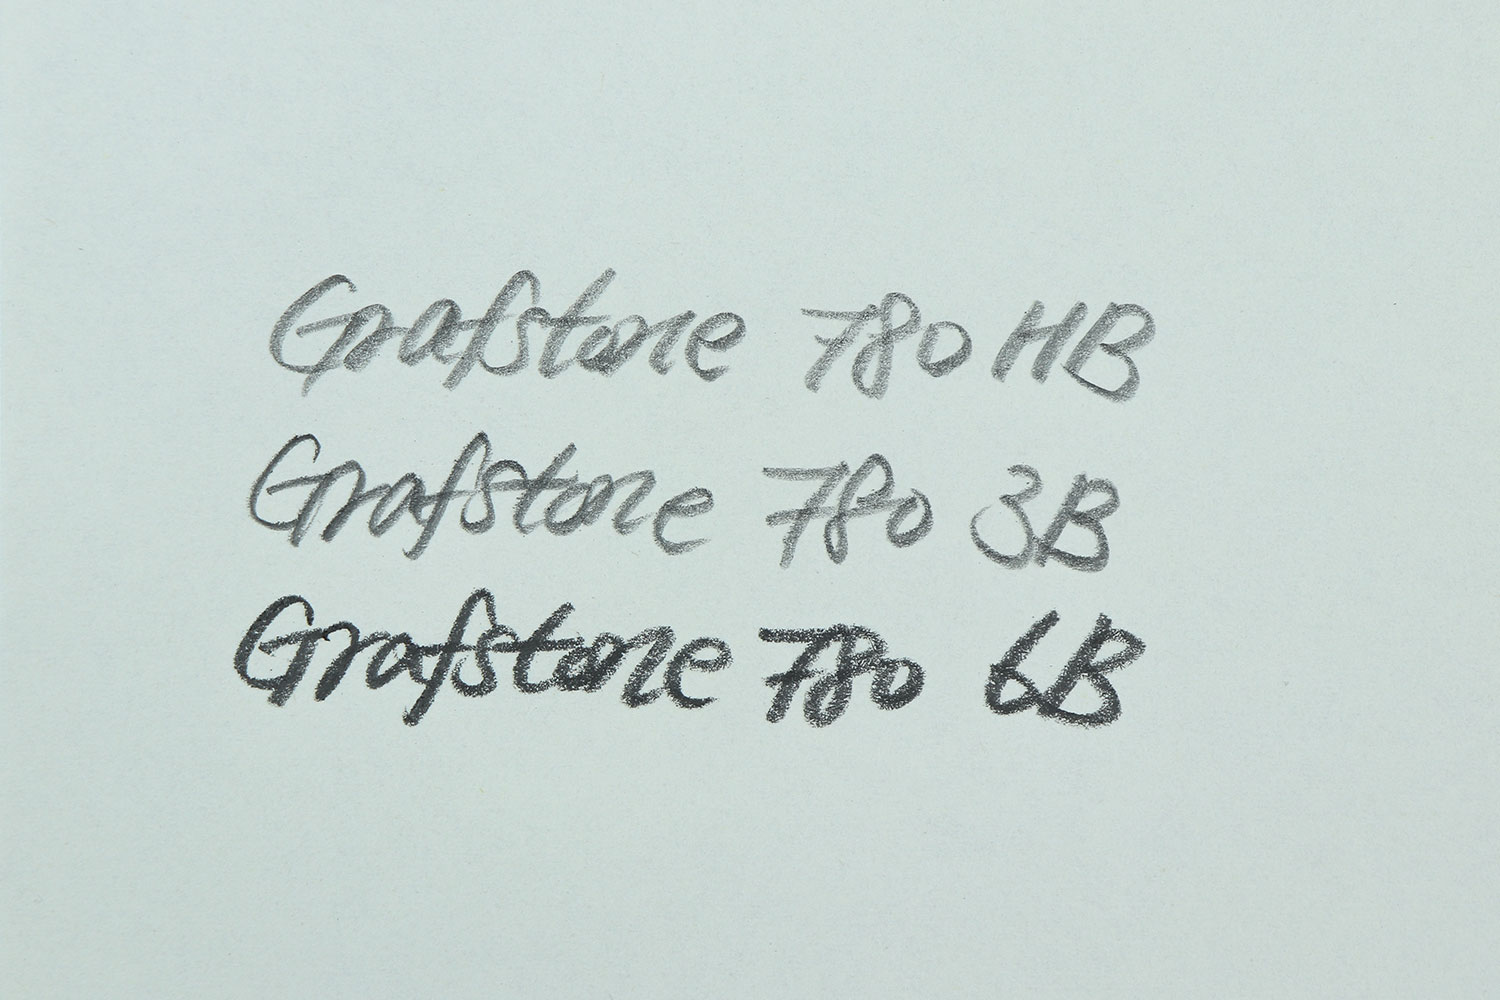 Grafstone 780 HB
Grafstone 780 3B
Grafstone 780 6B